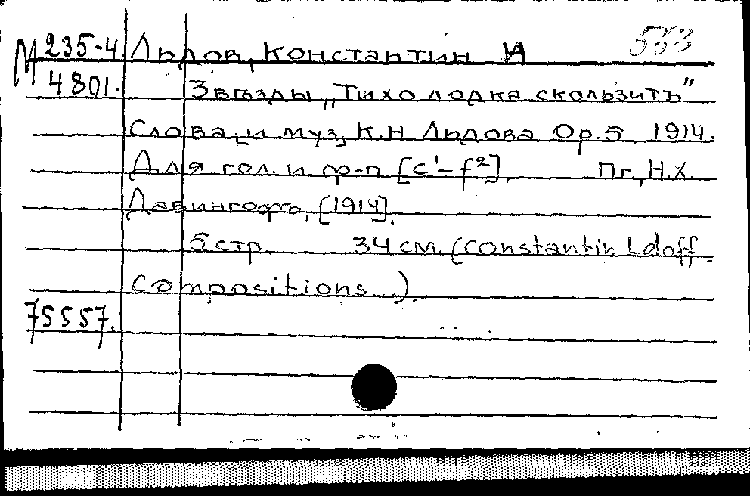 М 235-4 Льдов, Константин И 533
4801. Звѣзды „Тихо лодка скользитъ"
Слова и муз. К.Н Льдова Op.5. 1914.
Для гол. и ф-п [c¹-f²]. Пг, Н.Х.
Давингофъ, [1914].
5 стр. 34 см. (Constantin Ldoff.
Compositions).
75557.